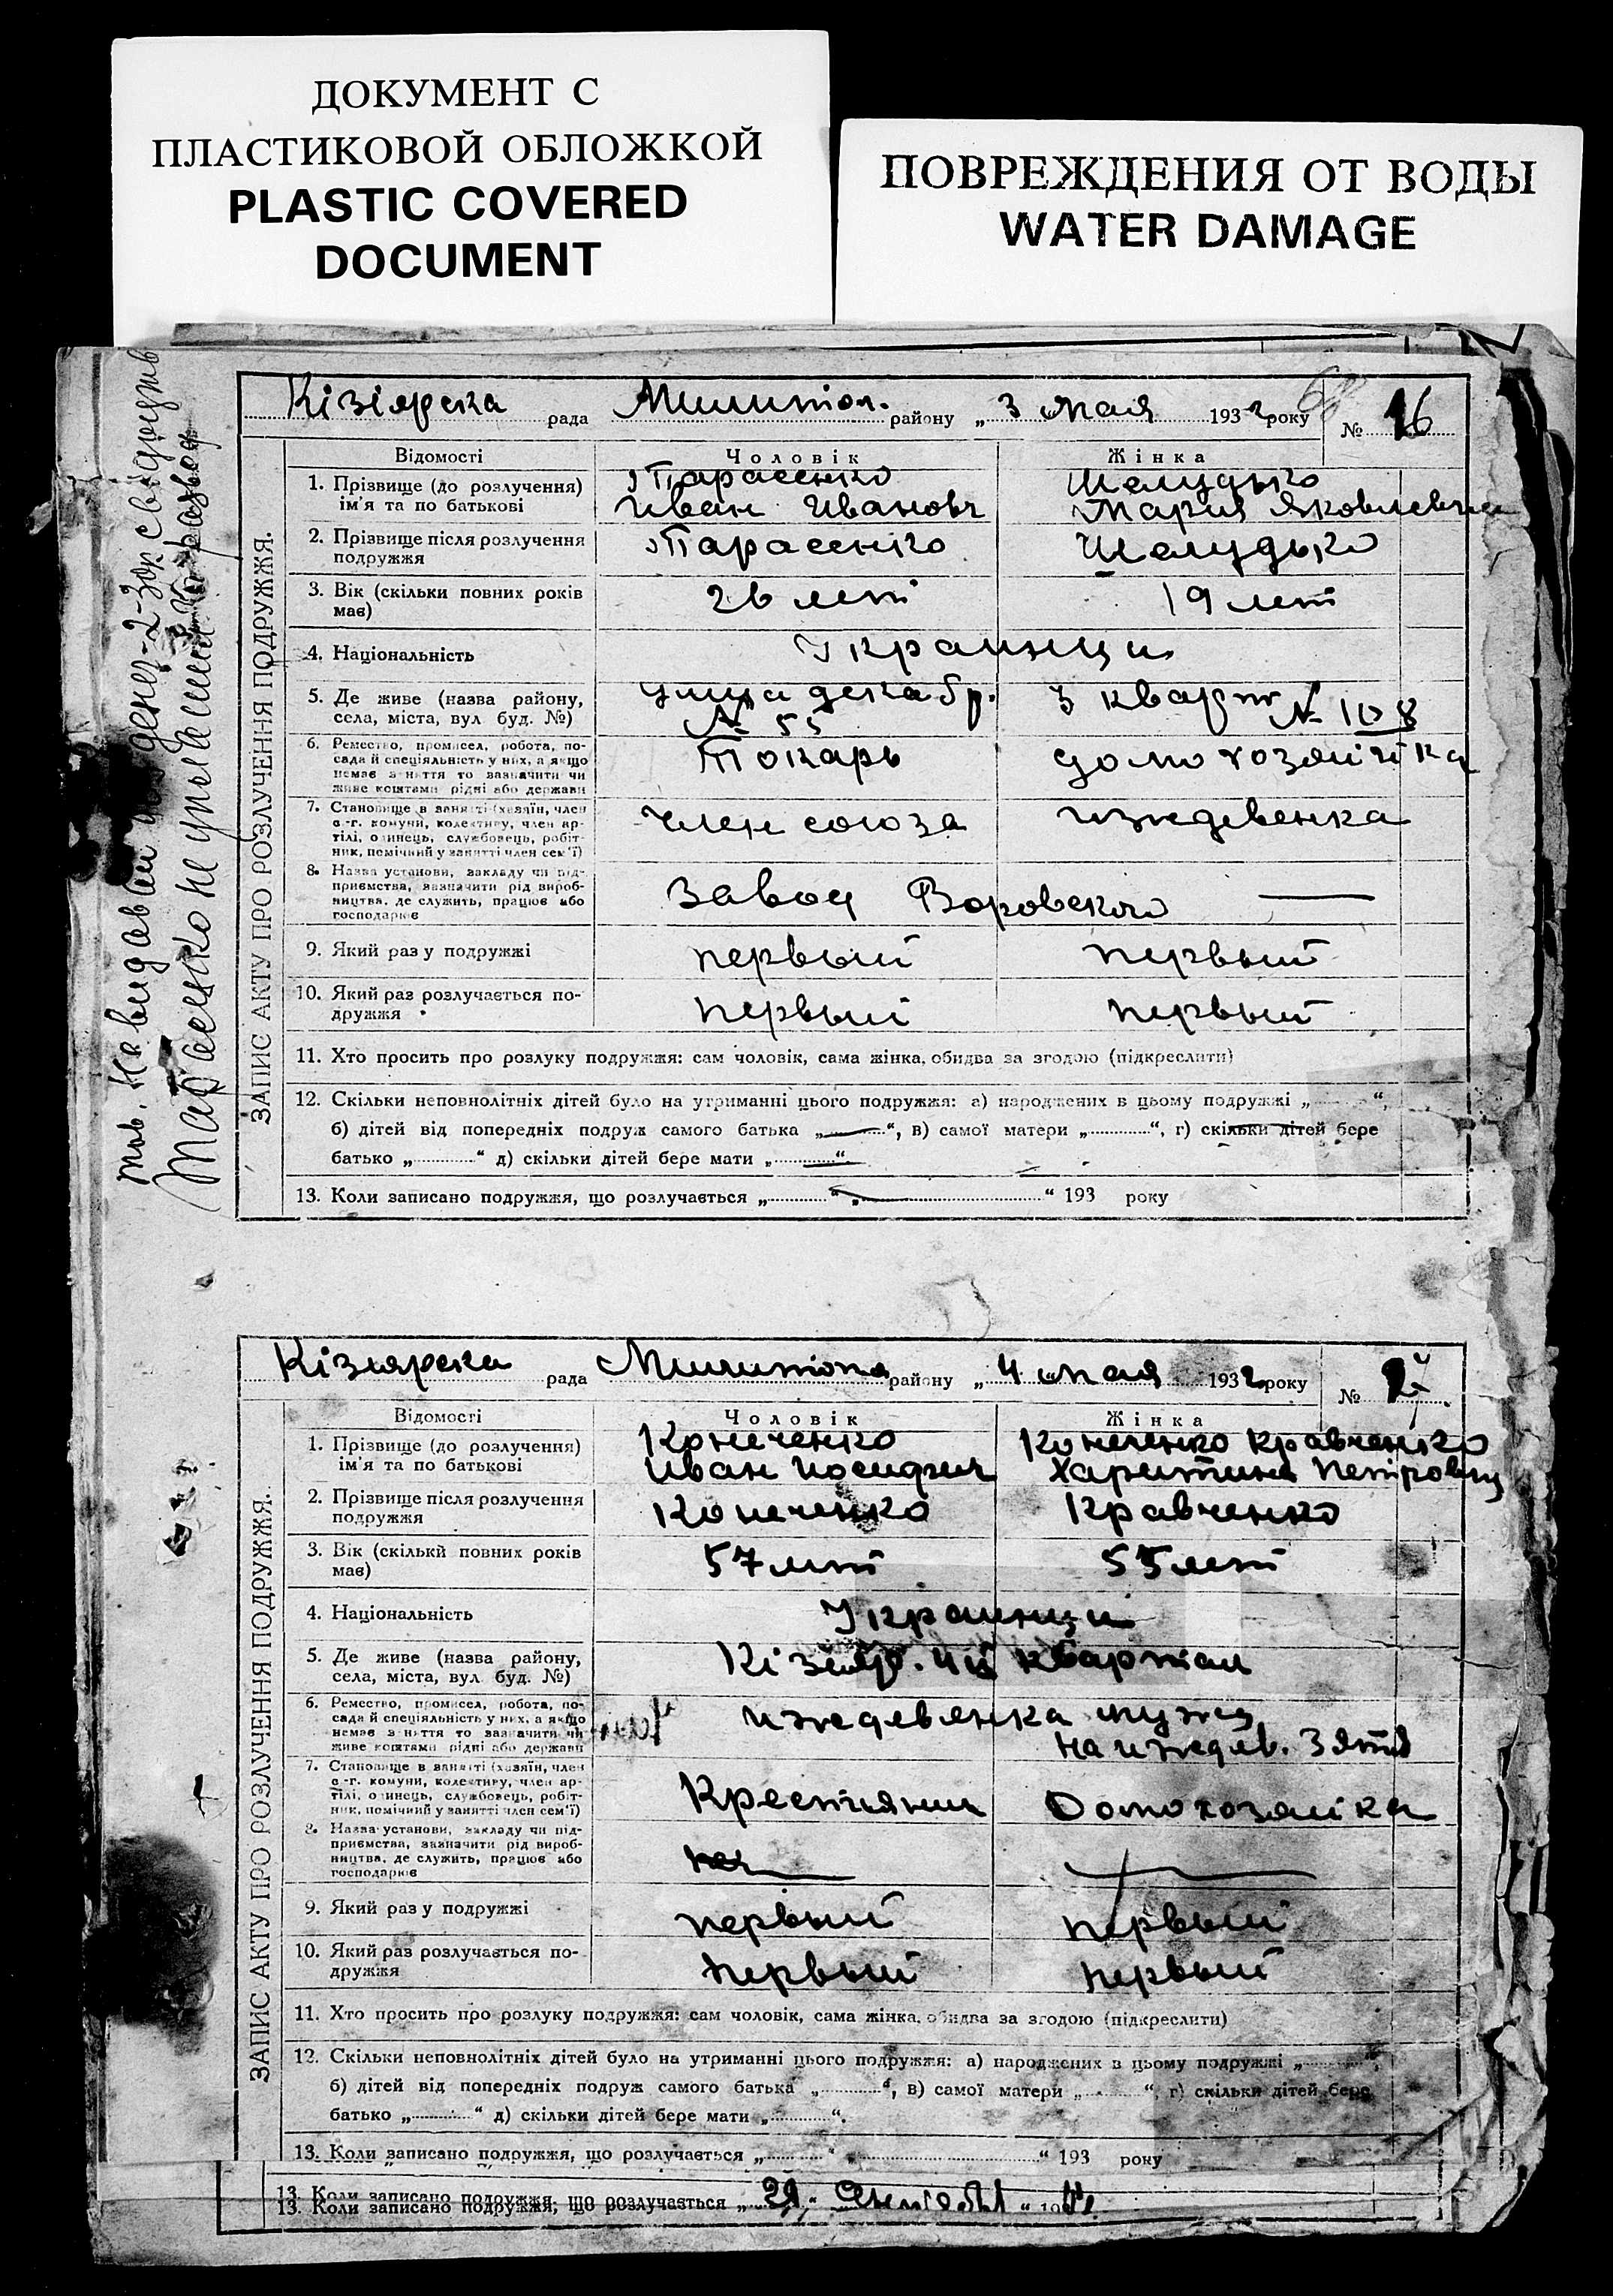 ДОКУМЕНТ С
ПЛАСТИКОВОЙ ОБЛОЖКОЙ
PLASTIC COVERED
DOCUMENT
ПОВРЕЖДЕНИЯ ОТ ВОДЫ
WATER DAMAGE
Кізіярска рада Милитоп. району „3 мая 1932 року № 16
ЗАПИС АКТУ ПРО РОЗЛУЧЕННЯ ПОДРУЖЖЯ.
Відомості Чоловік Жінка
1. Прізвище (до розлучення) Тарасенко Шелудько
ім'я та по батькові Иван Иванович Мария Яковлевна
2. Прізвище після розлучення Тарасенко Шелудько
подружжя
3. Вік (скільки повних років 26 лет 19 лет
має)
4. Національність Украинци
5. Де живе (назва району, улица декабр. 3 квар
села, міста, вул буд. №) № 55 № 108
6. Ремество, промисел, робота, по- Токарь домохозяйка
сада й спеціяльність у них, а якщо
немає з няття то зазначити чи
живе коштами рідні або держави
7. Становище в занятті (хазяїн, член член союза иждевенка
с.-г. комуни, колективу, член ар-
тілі, о инець, службовець, робіт-
ник, помічний у занятті член сем'ї)
8. Назва установи, закладу чи під- Завод Воровского
приємства, зазначити рід вироб-
ництва, де служить, працює або
господарює
9. Який раз у подружжі первый первый
10. Який раз розлучається по- первый первый
дружжя
11. Хто просить про розлуку подружжя: сам чоловік, сама жінка, обидва за згодою (підкреслити)
12. Скільки неповнолітніх дітей було на утриманні цього подружжя: а) народжених в цьому подружжі „ “,
б) дітей від попередніх подруж самого батька „ “, в) самої матери „ “, г) скільки дітей бере
батько „ “ д) скільки дітей бере мати „ “.
13. Коли записано подружжя, що розлучається „ “ „ “ 193 року
Тарасенко не
Кізіярска рада Милитопа району „4 мая 1932 року №
ЗАПИС АКТУ ПРО РОЗЛУЧЕННЯ ПОДРУЖЖЯ.
Відомості Чоловік Жінка
1. Прізвище (до розлучення) Конеченко Конеченко Кравченко
ім'я та по батькові Иван Петровна
2. Прізвище після розлучення Конеченко Кравченко
подружжя
3. Вік (скількй повних років 57 лет 55 лет
має)
4. Національність Украинци
5. Де живе (назва району, Кізіяр. 4й квартал
села, міста, вул буд. №)
6. Ремество, промисел, робота, по- иждевенка мужа
сада й спеціяльність у них, а якщо на иждев. Зятя
немає з няття то зазначити чи
живе коштами рідні або держави
7. Становище в занятті (хазяїн, член Крестьянин Домохозяйка
с.-г. комуни, колективу, член ар-
тілі, о инець, службовець, робіт-
ник, помічний у занятті член сем'ї)
8. Назва установи, закладу чи під-
приємства, зазначити рід вироб-
ництва, де служить, працює або
господарює
9. Який раз у подружжі первый первый
10. Який раз розлучається по- первый первый
дружжя
11. Хто просить про розлуку подружжя: сам чоловік, сама жінка, обидва за згодою (підкреслити)
12. Скільки неповнолітніх дітей було на утриманні цього подружжя: а) народжених в цьому подружжі „ “,
б) дітей від попередніх подруж самого батька „ “, в) самої матери „ “, г) скільки дітей бере
батько „ “ д) скільки дітей бере мати „ “.
13. Коли записано подружжя, що розлучається „ “ „ “ 193 року
13. Коли записано подружжя, що розлучається
13. Коли записано подружжя, що розлучається „